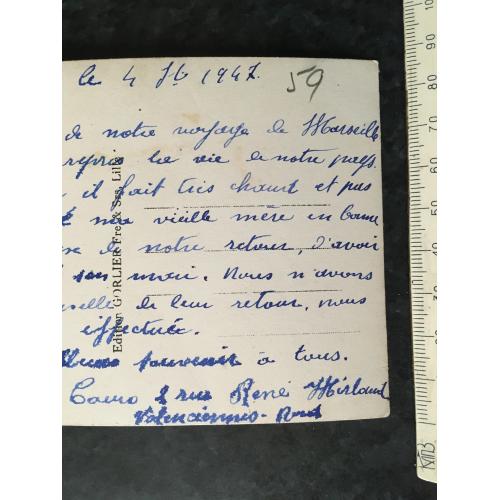 le 4 7b 1947. 59
de notre voyage de Marseille
repris la vie de notre pays.
il fait très chaud et pas
ma vieille mère en bonne
de notre retour, d'avoir
son mari. Nous n'avons
de leur retour, nous
effectué.
souvenir à tous.
Cairo 2 rue René Mirland
Valenciennes. Nord
Edition GORLIER Fre & Sœ, Lille.
100
90
80
70
60
50
40
30
20
10